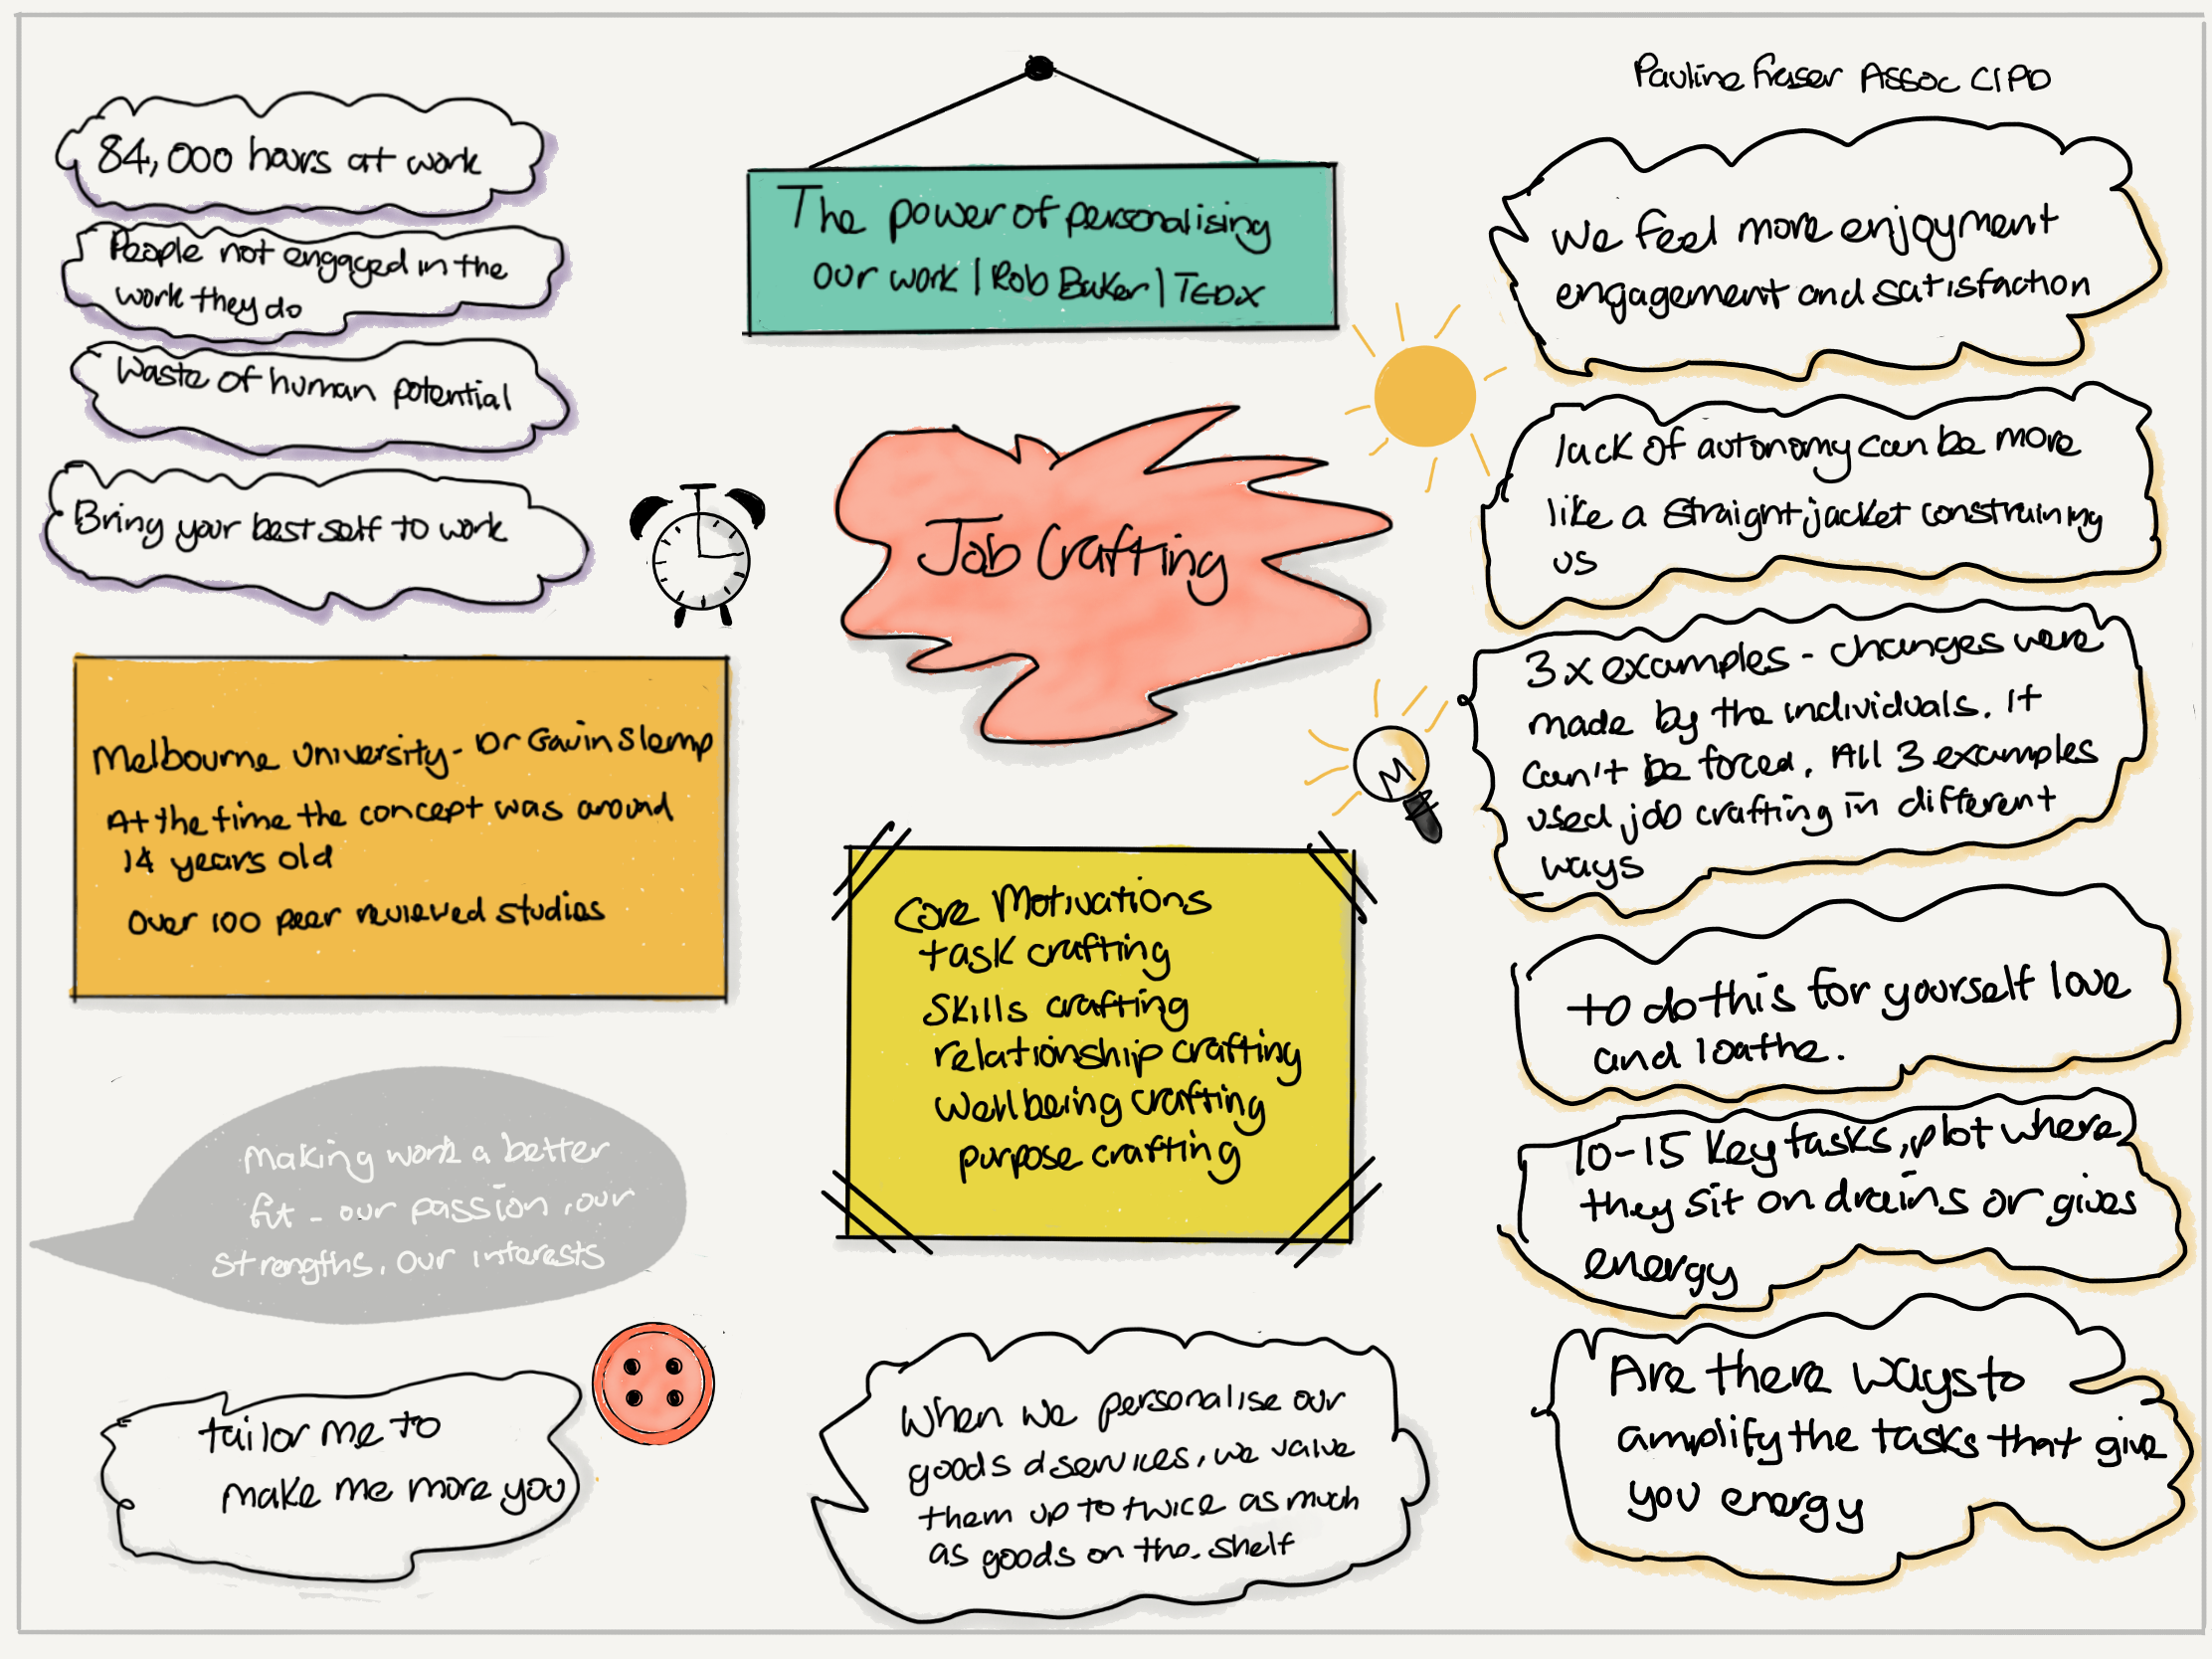 Pauline Fraser Assoc CIPD
The power of personalising
our work | Rob Baker | TEDX
84,000 hours at work
People not engaged in the
work they do
Waste of human potential
Bring your best self to work
Job Crafting
Melbourne University - Dr Gavin Slemp
At the time the concept was around
14 years old
Over 100 peer reviewed studies
Making work a better
fit - our passion, our
strengths, our interests
tailor me to
make me more you
Core Motivations
task crafting
Skills crafting
relationship crafting
Wellbeing crafting
purpose crafting
When we personalise our
goods & services, we value
them up to twice as much
as goods on the shelf
We feel more enjoyment
engagement and satisfaction
lack of autonomy can be more
like a straight jacket constraining
us
3 x examples - changes were
made by the individuals. It
can't be forced. All 3 examples
used job crafting in different
ways
to do this for yourself love
and loathe.
10-15 Key tasks, plot where
they sit on drains or gives
energy
Are there ways to
amplify the tasks that give
you energy